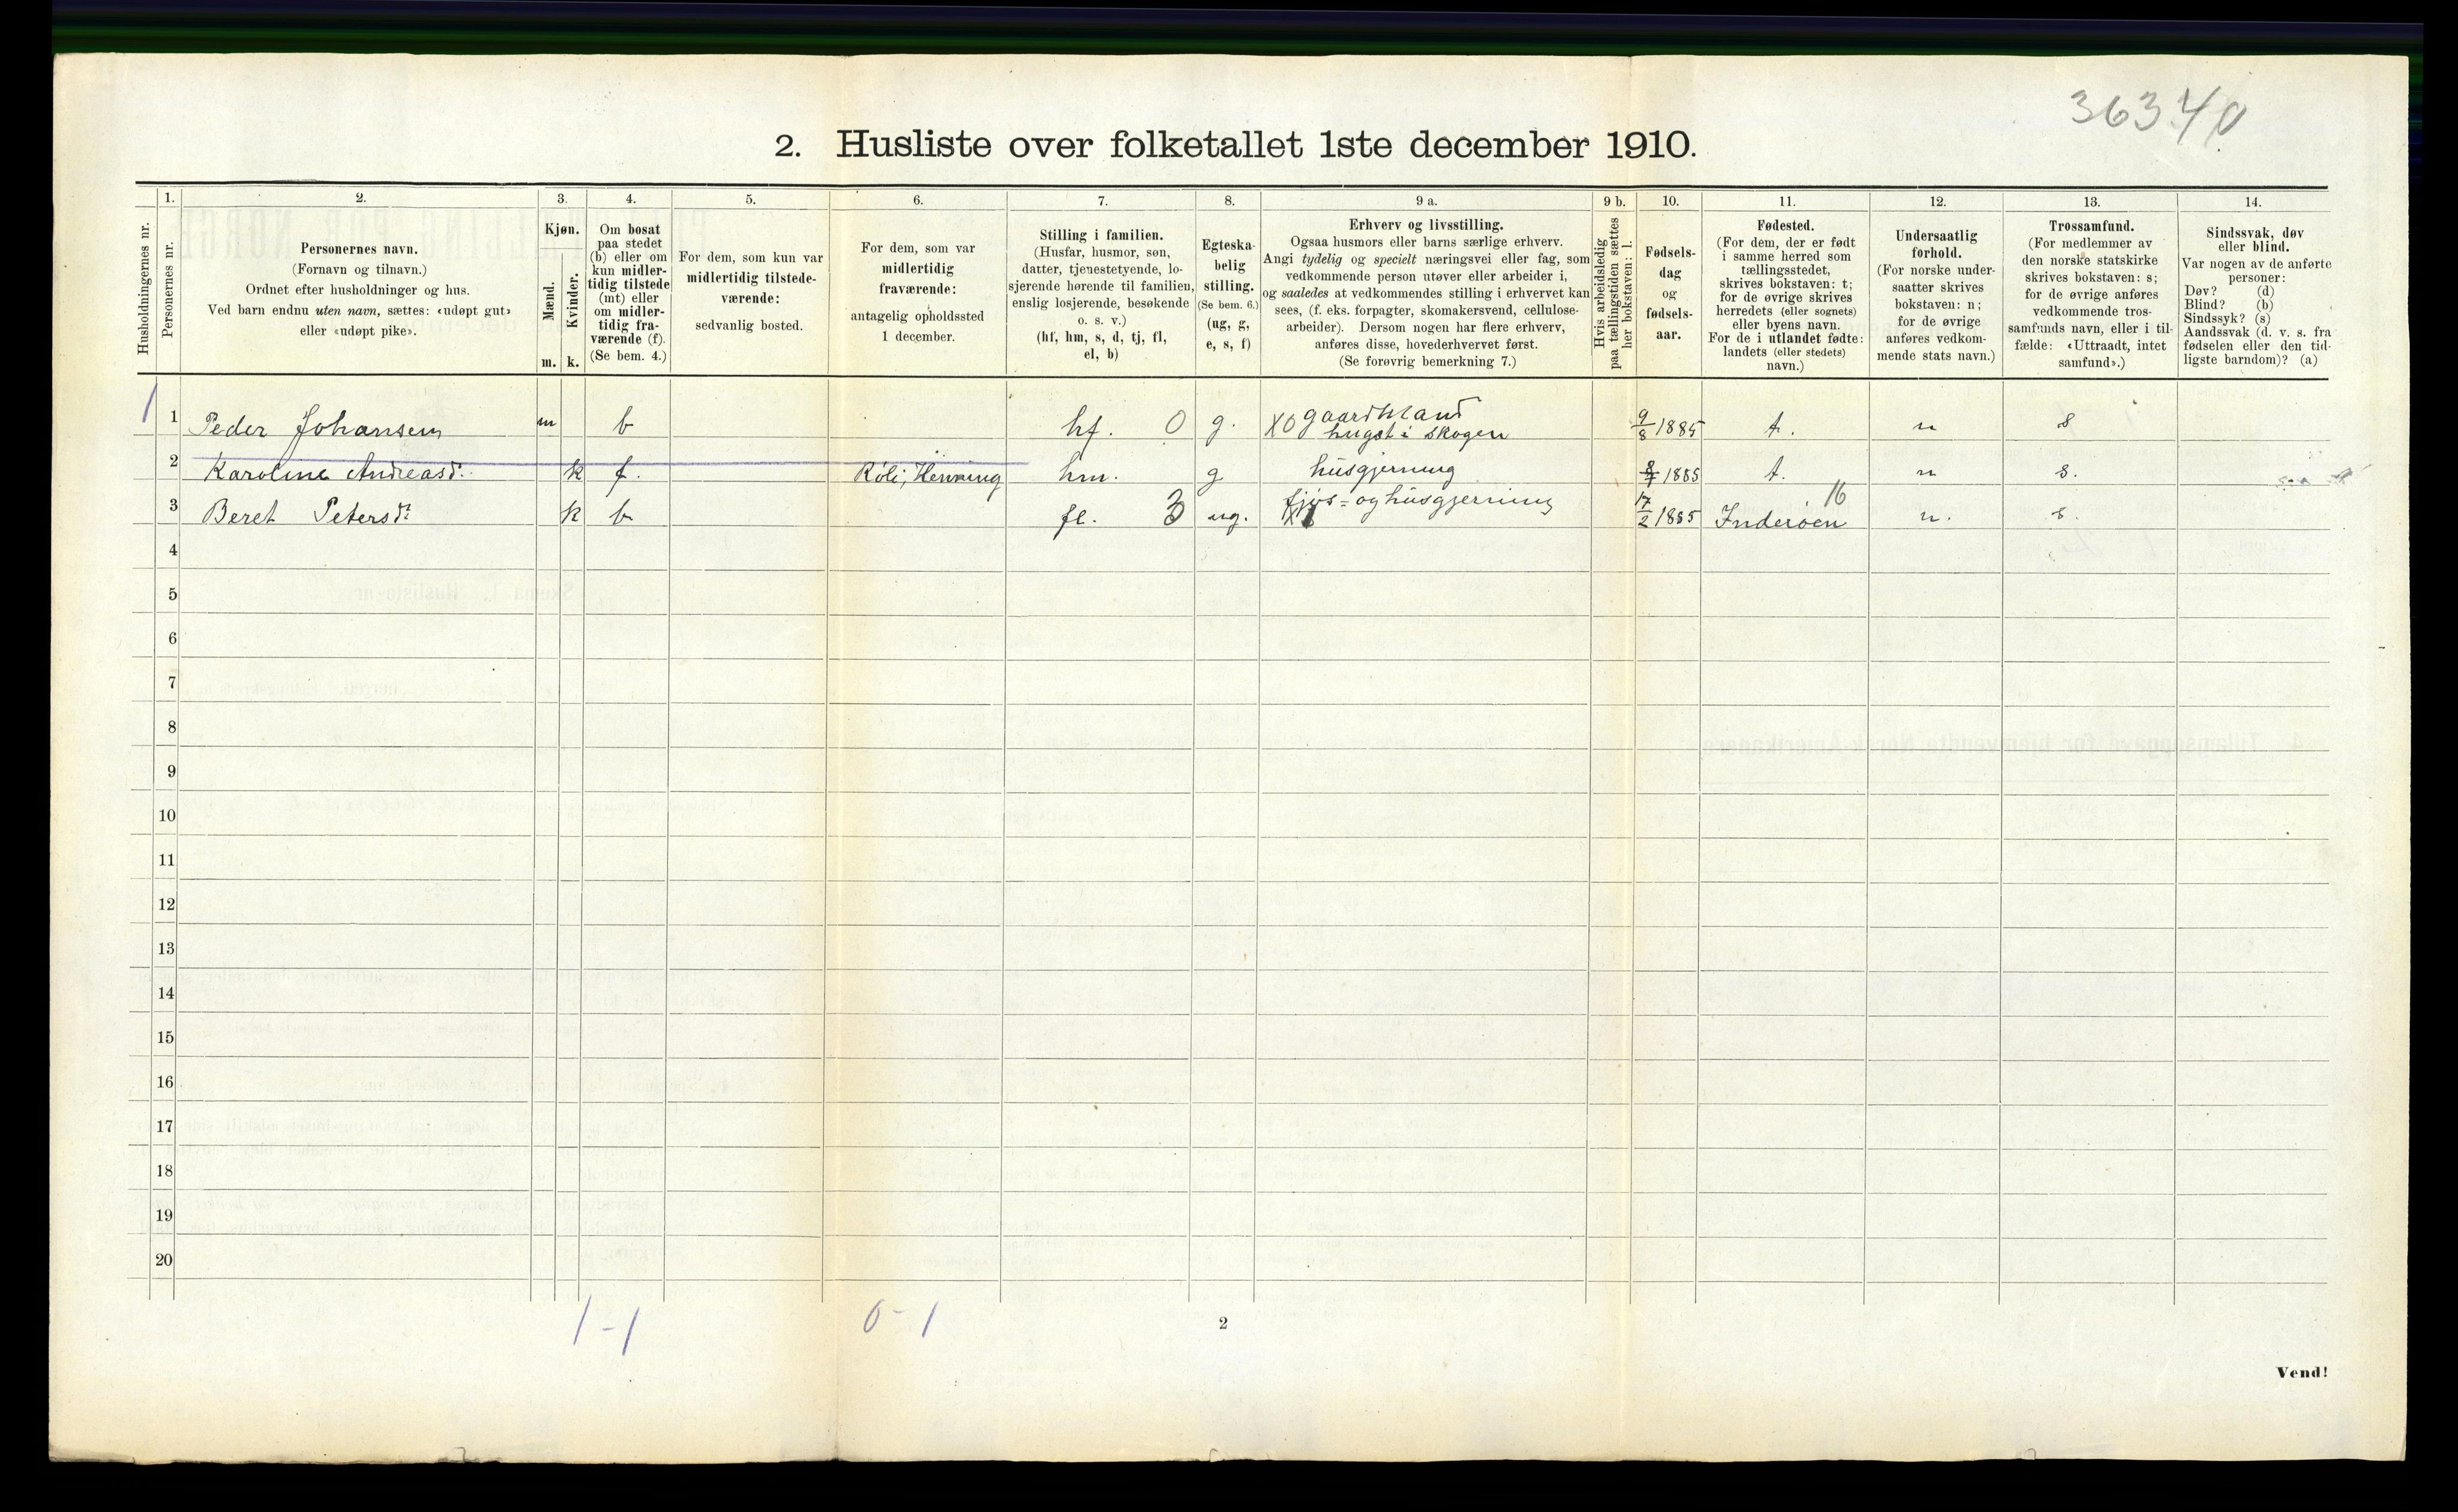 36340
2. Husliste over folketallet 1ste december 1910.
Husholdningernes nr.
1.
Personernes nr.
2.
Personernes navn.
(Fornavn og tilnavn.)
Ordnet efter husholdninger og hus.
Ved barn endnu uten navn, sættes: «udøpt gut»
eller «udøpt pike».
3.
Kjøn.
Mænd.
Kvinder.
m. k.
4.
Om bosat
paa stedet
(b) eller om
kun midler-
tidig tilstede
(mt) eller
om midler-
tidig fra-
værende (f).
(Se bem. 4.)
5.
For dem, som kun var
midlertidig tilstede-
værende:
sedvanlig bosted.
6.
For dem, som var
midlertidig
fraværende:
antagelig opholdssted
1 december.
7.
Stilling i familien.
(Husfar, husmor, søn,
datter, tjenestetyende, lo-
sjerende hørende til familien,
enslig losjerende, besøkende
o. s. v.)
(hf, hm, s, d, tj, fl,
el, b)
8.
Egteska-
belig
stilling.
(Se bem. 6.)
(ug, g,
e, s, f)
9 a.
Erhverv og livsstilling.
Ogsaa husmors eller barns særlige erhverv.
Angi tydelig og specielt næringsvei eller fag, som
vedkommende person utøver eller arbeider i,
og saaledes at vedkommendes stilling i erhvervet kan
sees, (f. eks. forpagter, skomakersvend, cellulose-
arbeider). Dersom nogen har flere erhverv,
anføres disse, hovederhvervet først.
(Se forøvrig bemerkning 7.)
9 b.
Hvis arbeidsledig
paa tællingstiden sættes
her bokstaven: l.
10.
Fødsels-
dag
og
fødsels-
aar.
11.
Fødested.
(For dem, der er født
i samme herred som
tællingsstedet,
skrives bokstaven: t;
for de øvrige skrives
herredets (eller sognets)
eller byens navn.
For de i utlandet fødte:
landets (eller stedets)
navn.)
12.
Undersaatlig
forhold.
(For norske under-
saatter skrives
bokstaven: n;
for de øvrige
anføres vedkom-
mende stats navn.)
13.
Trossamfund.
(For medlemmer av
den norske statskirke
skrives bokstaven: s;
for de øvrige anføres
vedkommende tros-
samfunds navn, eller i til-
fælde: «Uttraadt, intet
samfund».)
14.
Sindssvak, døv
eller blind.
Var nogen av de anførte
personer:
Døv? (d)
Blind? (b)
Sindssyk? (s)
Aandssvak (d. v. s. fra
fødselen eller den tid-
ligste barndom)? (a)
1 1 Peder Johansen m b hf. 0 g. X0 gaardmand hugst i skogen 9/8 1885 t. n s
2 Karoline Andreasd: k f. Röli, Henning hm. g husgjerning 1885 t. n s.
3 Beret Petersd: k b fl. 3 ug. fjøs- og husgjerning 17/2 1885 Inderöen 16 n. s.
4
5
6
7
8
9
10
11
12
13
14
15
16
17
18
19
20
1-1 0-1
2
Vend!